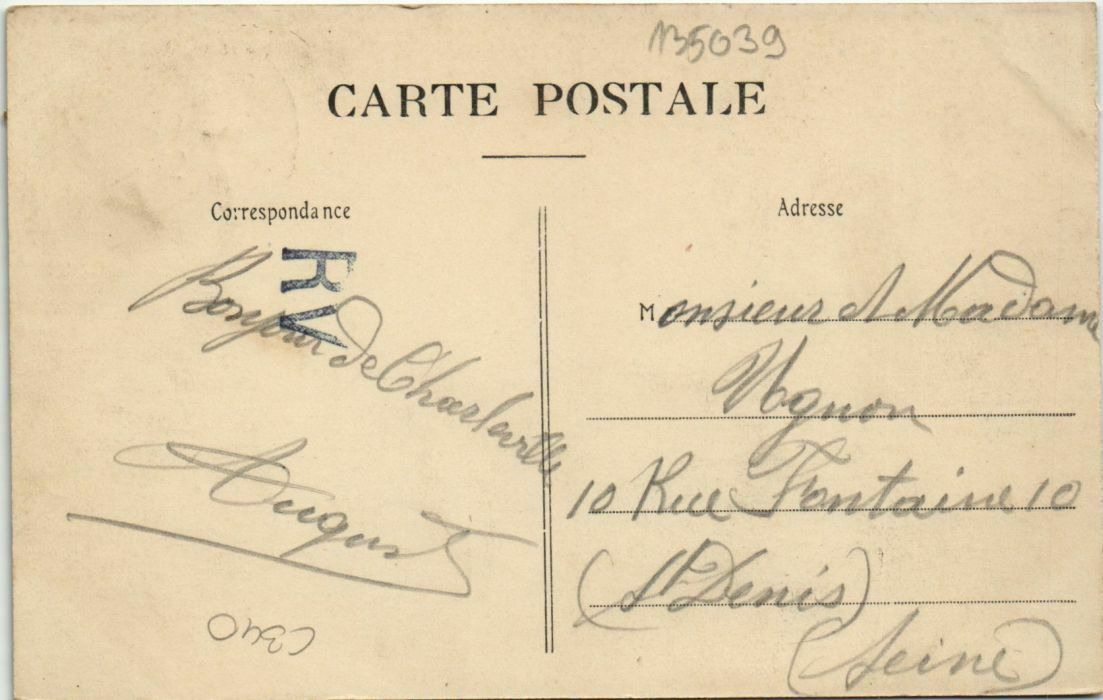 135039
CARTE POSTALE
Correspondance
RV
Bonjour de Charleville
August
C340
Adresse
Monsieur et Madame
Vognon
10 Rue Fontaine 10
(St Denis)
(Seine)